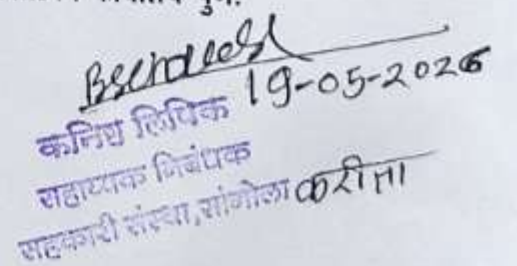 19-05-2026
कनिष्ठ लिपिक
सहाय्यक निबंधक
सहकारी संस्था, सांगोला करीता